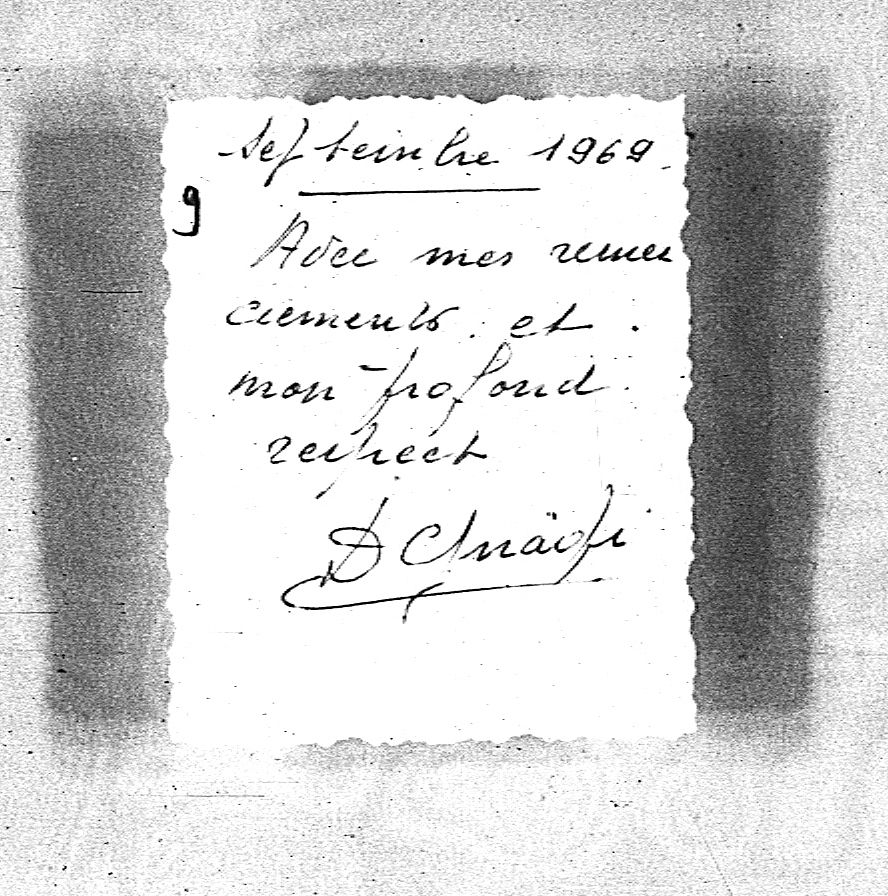 Septembre 1969
9
Avec mes remer
ciements et
mon profond
respect
D